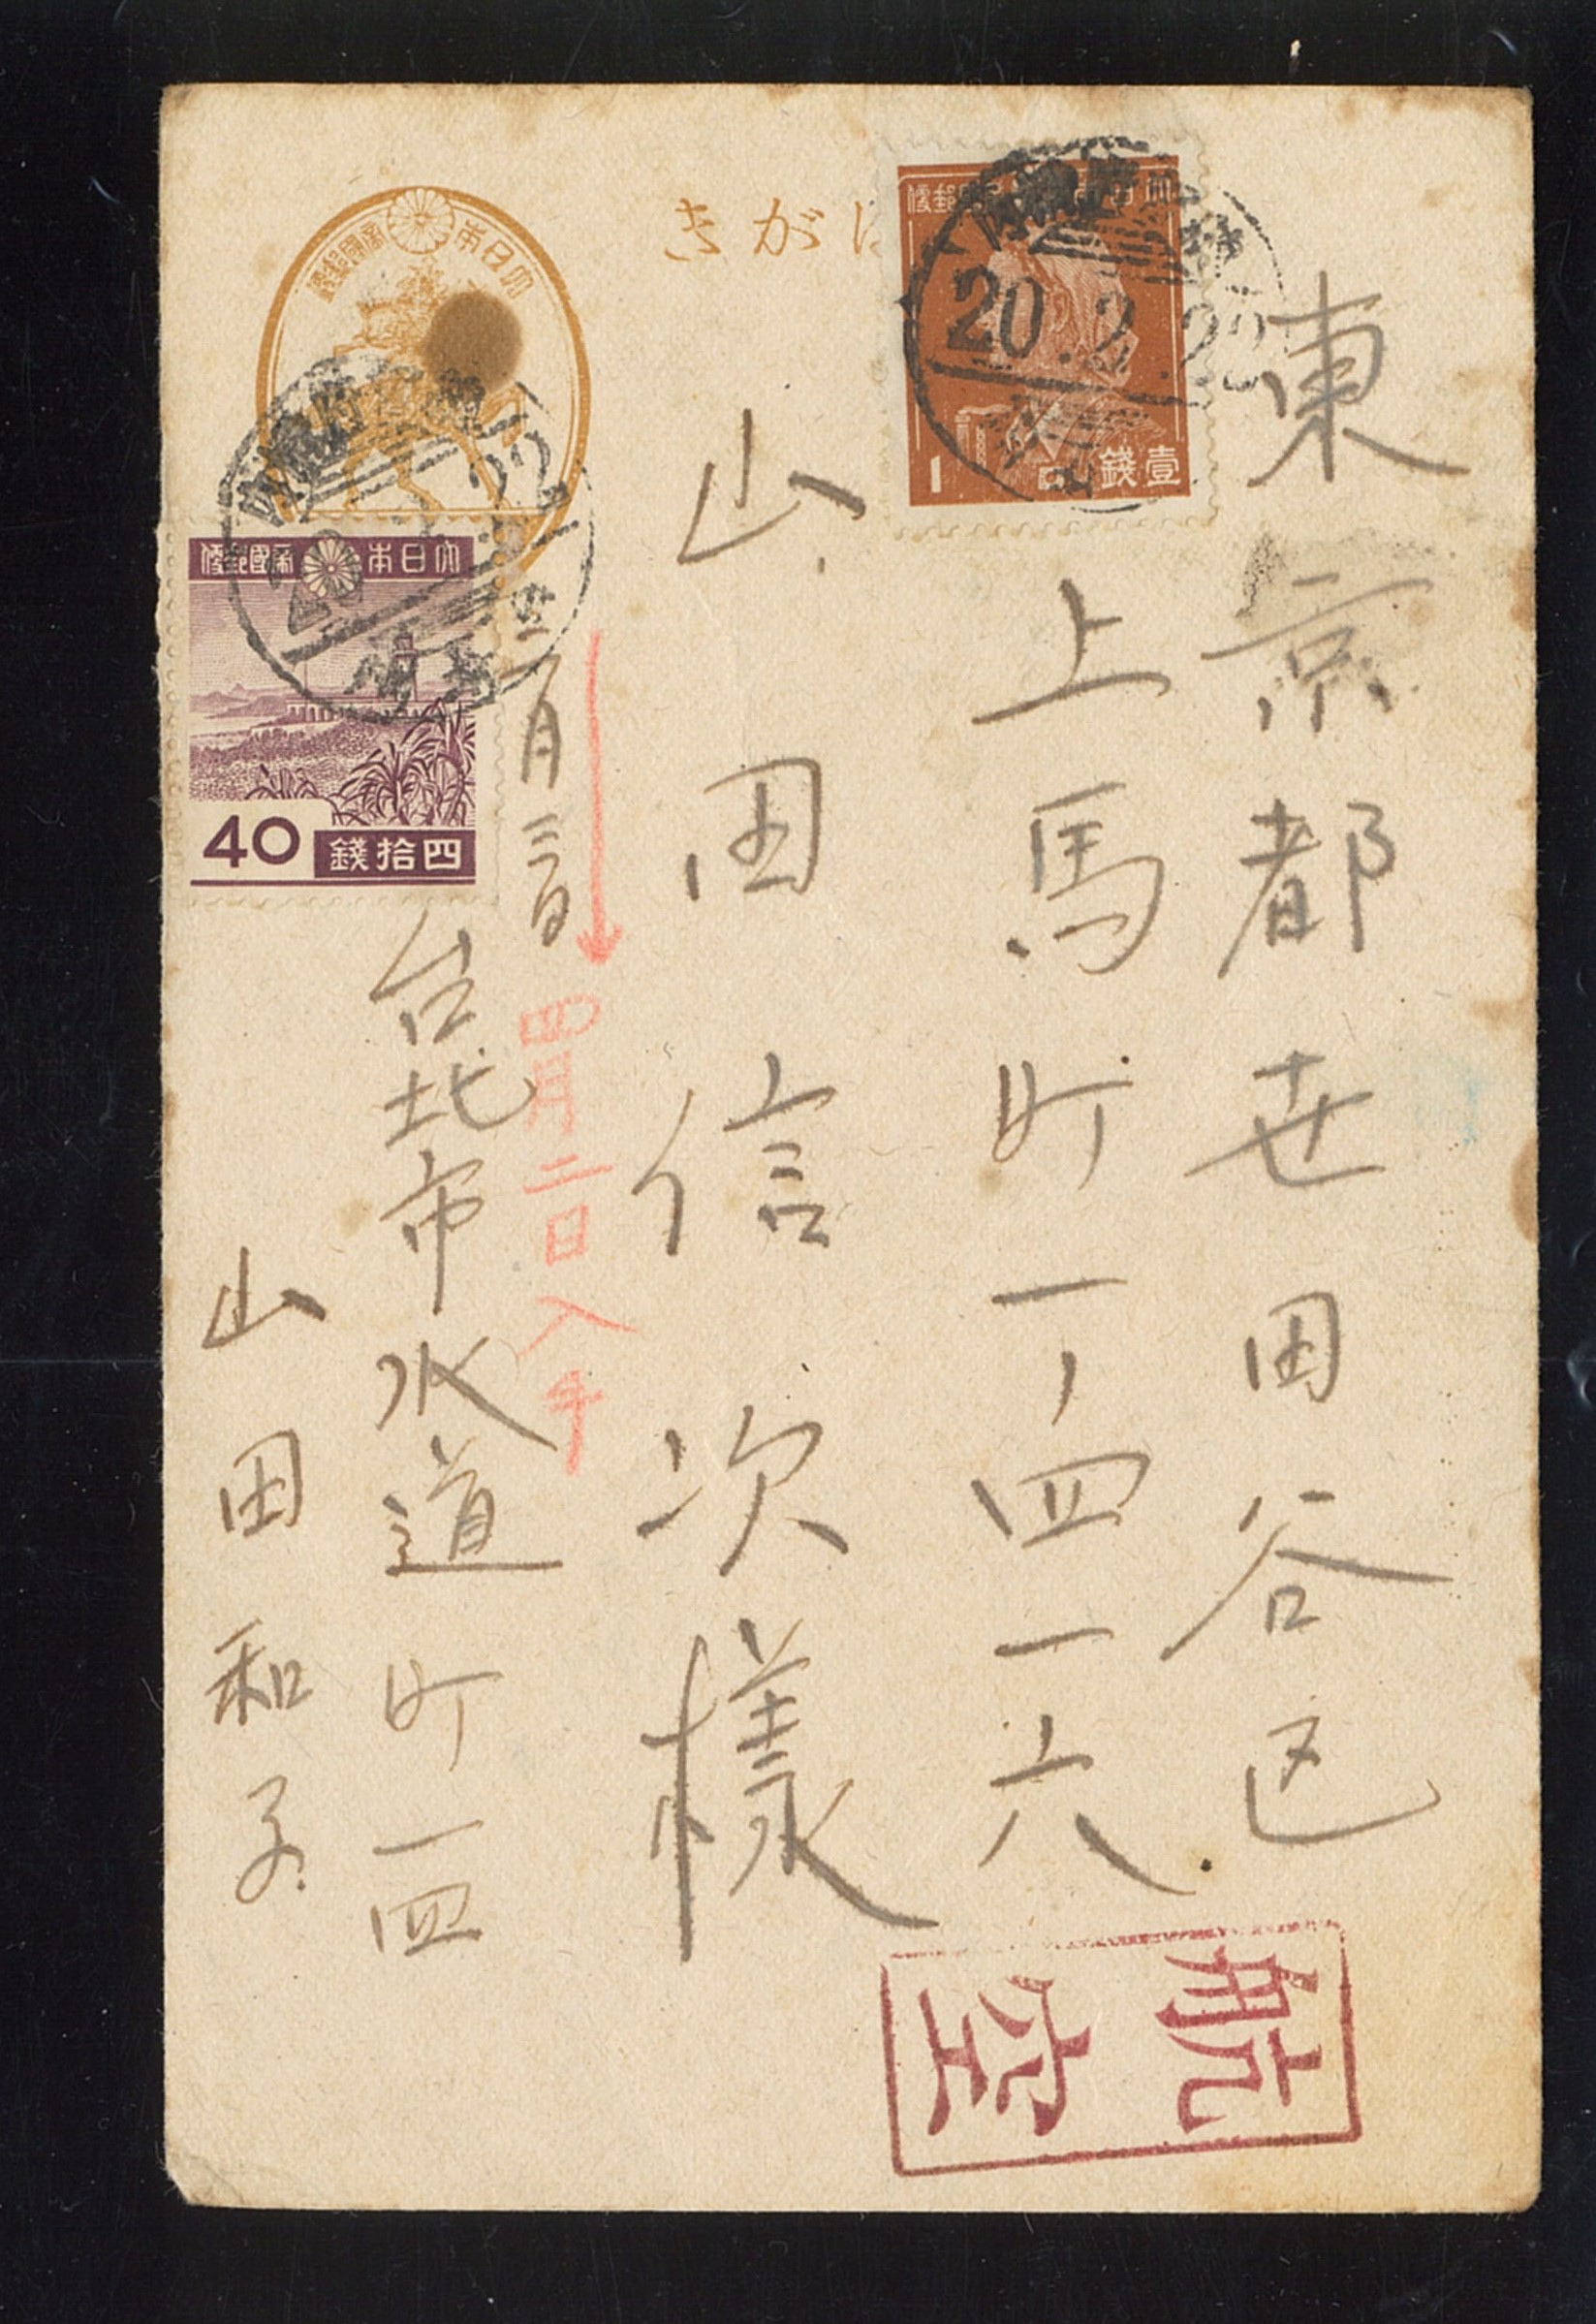 きがは
大日本帝國郵便
大日本帝國郵便
壹錢
1
20.2.22
大日本帝國郵便
40
四拾錢
22
東京都世田谷区
上馬町一ノ四一六
山田信次様
台北市水道町一四
山田和子
四月二日入手
航空